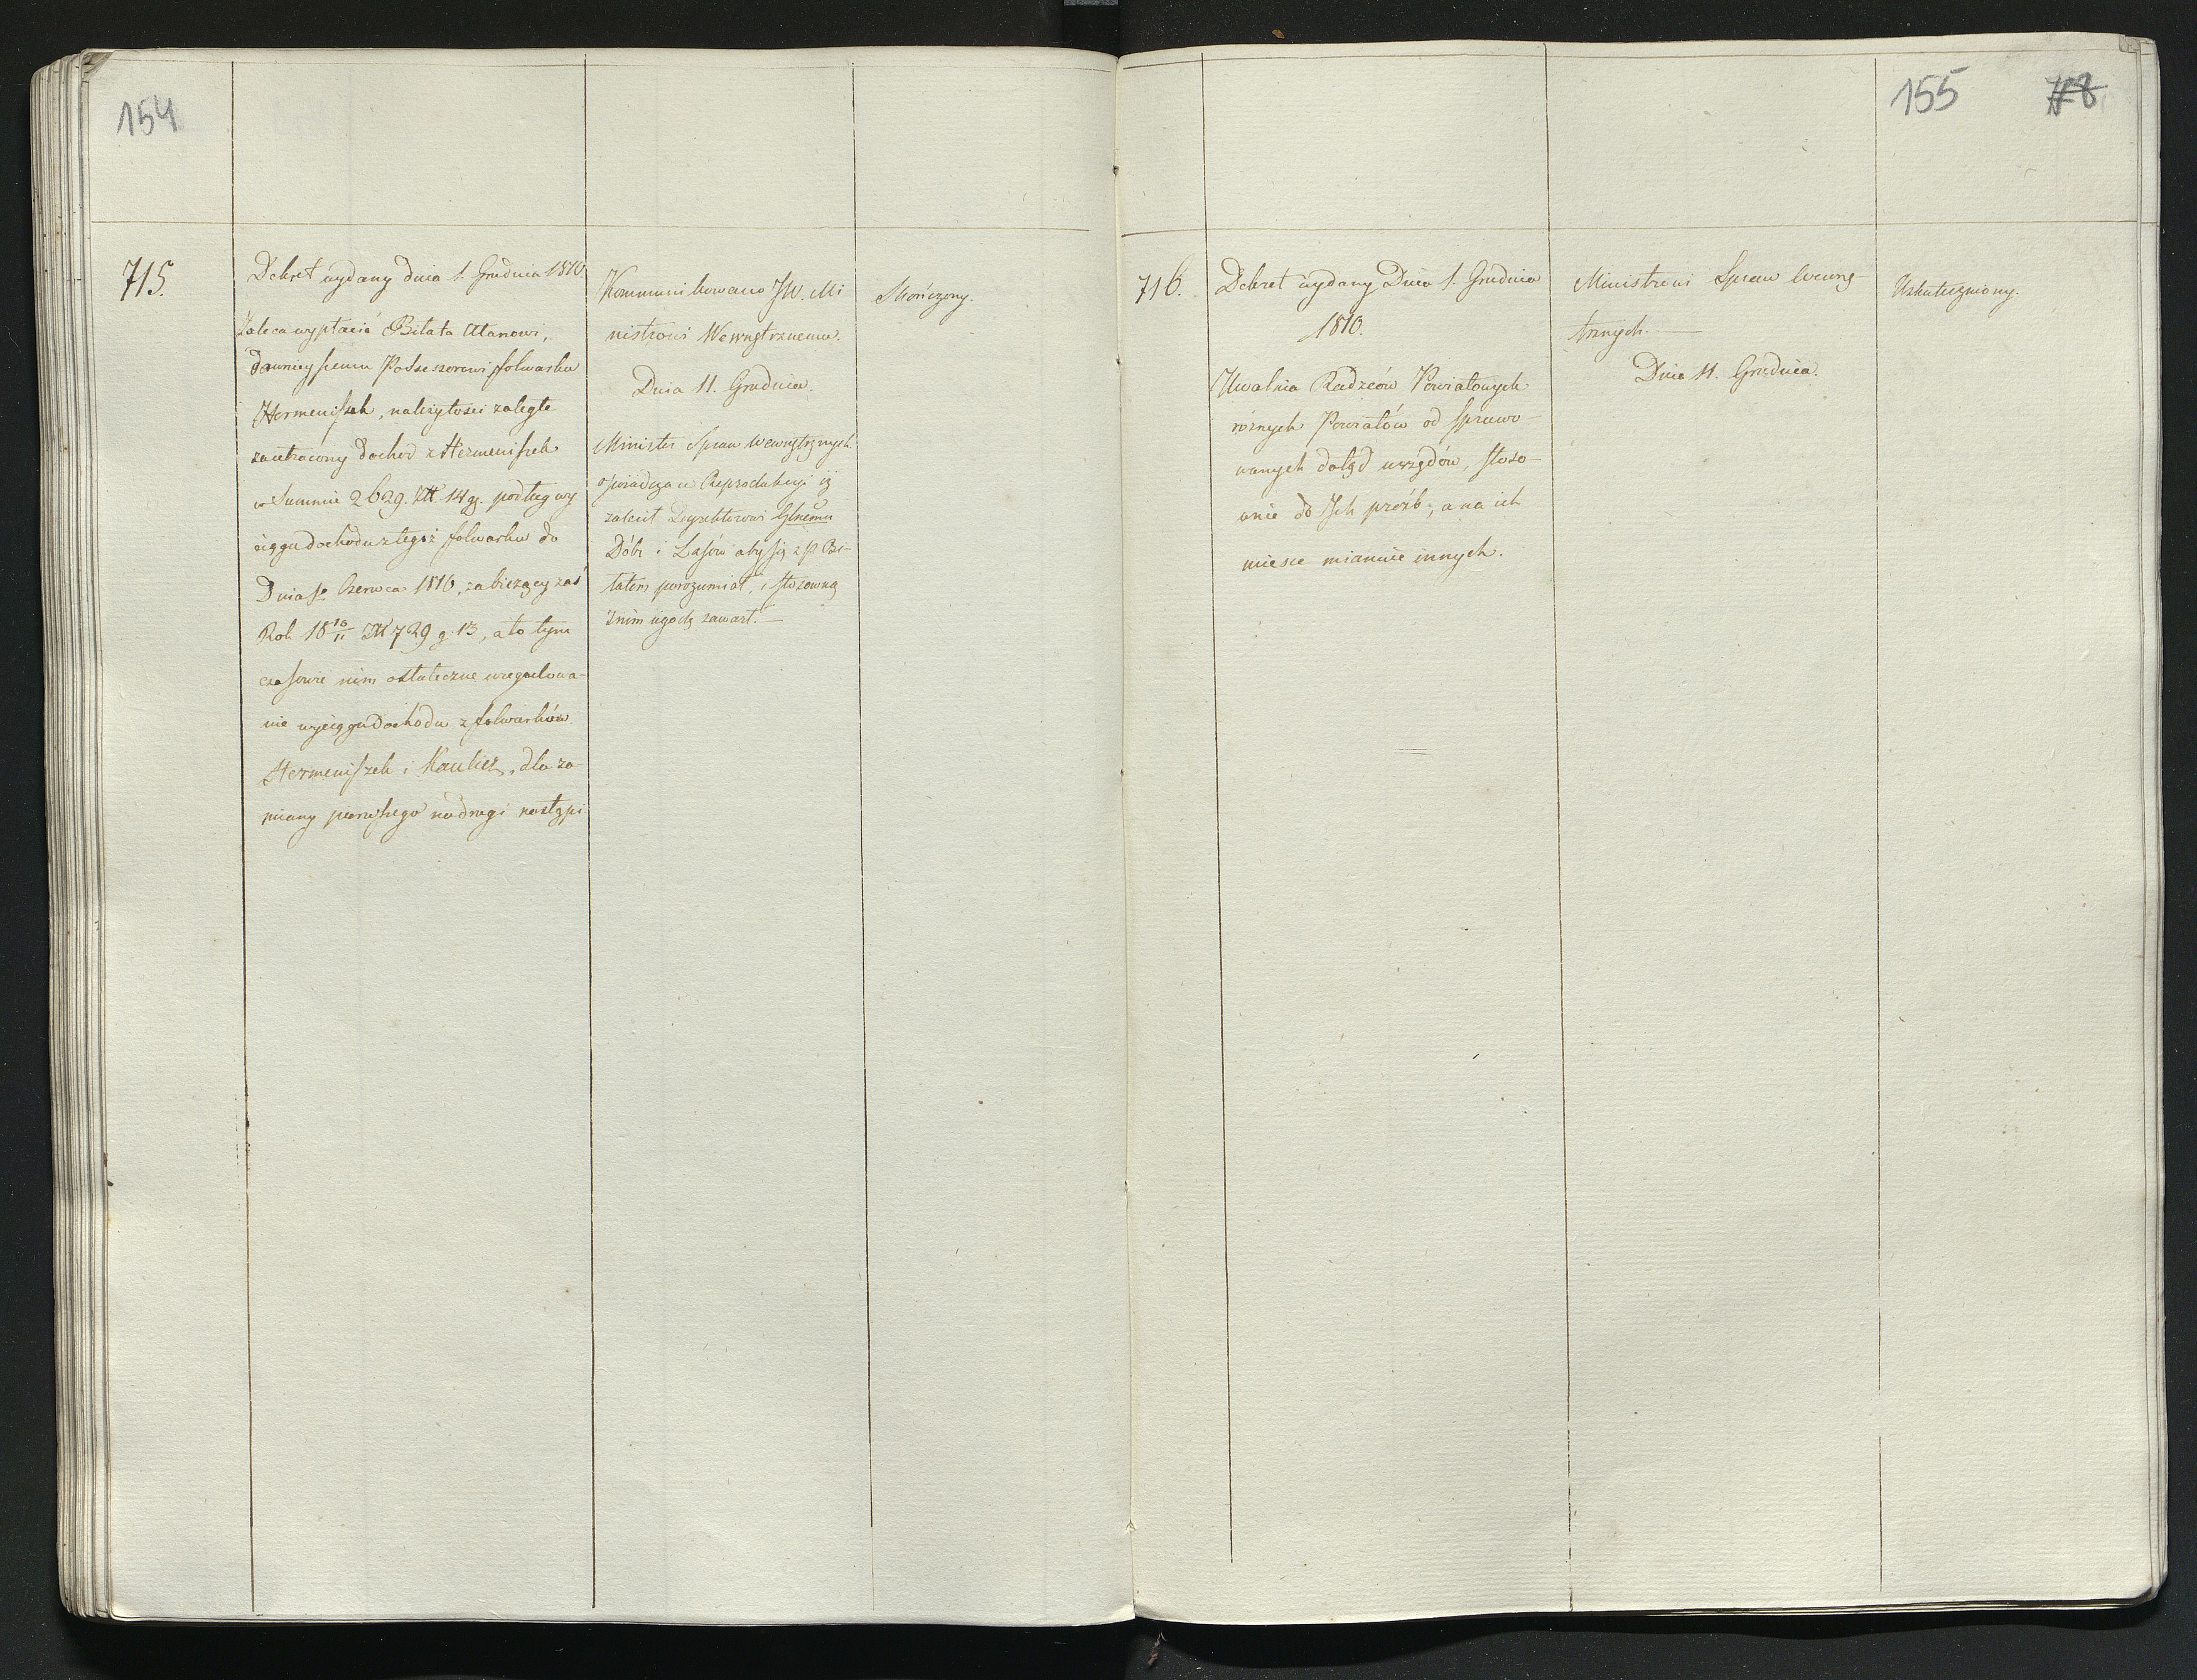 154
715.
Dekret wydany dnia 1. Grudnia 1810
Zaleca wypłacić Bilata Atanowi,
dawnieyszemu Possessorowi folwarku
Hermeniszek, należytości zaległe
za utracony dochód z Hermeniszek
w Summie 2629. Zł. 14 g. podług wy
ciągu dochodu z tegoż folwarku do
Dnia 1o Czerwca 1810, za bieżący zaś
Rok 18 10/11 Zł 729 g. 13, a to tym
czasowie nim ostateczne uregulowa-
nie wyciągu dochodu z folwarków
Hermeniszek i Kaukies, dla za-
miany pierwszego na drugi nastąpi.
Kommunikowano JW. Mi
nistrowi Wewnętrznemu.
Dnia 11. Grudnia.
Minister Spraw Wewnętrznych
oświadcza w Reprodukcyi iż
zalecił Dyrektorowi Glnemu
Dóbr i Lasów aby się z P. Bi-
latem porozumiał, i stosowną
z nim ugodę zawarł. —
Skończony.
155
78
716.
Dekret wydany Dnia 1. Grudnia
1810.
Uwalnia Radzców Powiatowych
różnych Powiatów od sprawo-
wanych dotąd urzędów, stoso-
wnie do Ich proźb, a na ich
miesce mianuie innych.
Ministrowi Spraw Wewnę-
trznych. —
Dnia 11. Grudnia.
Uskuteczniony.